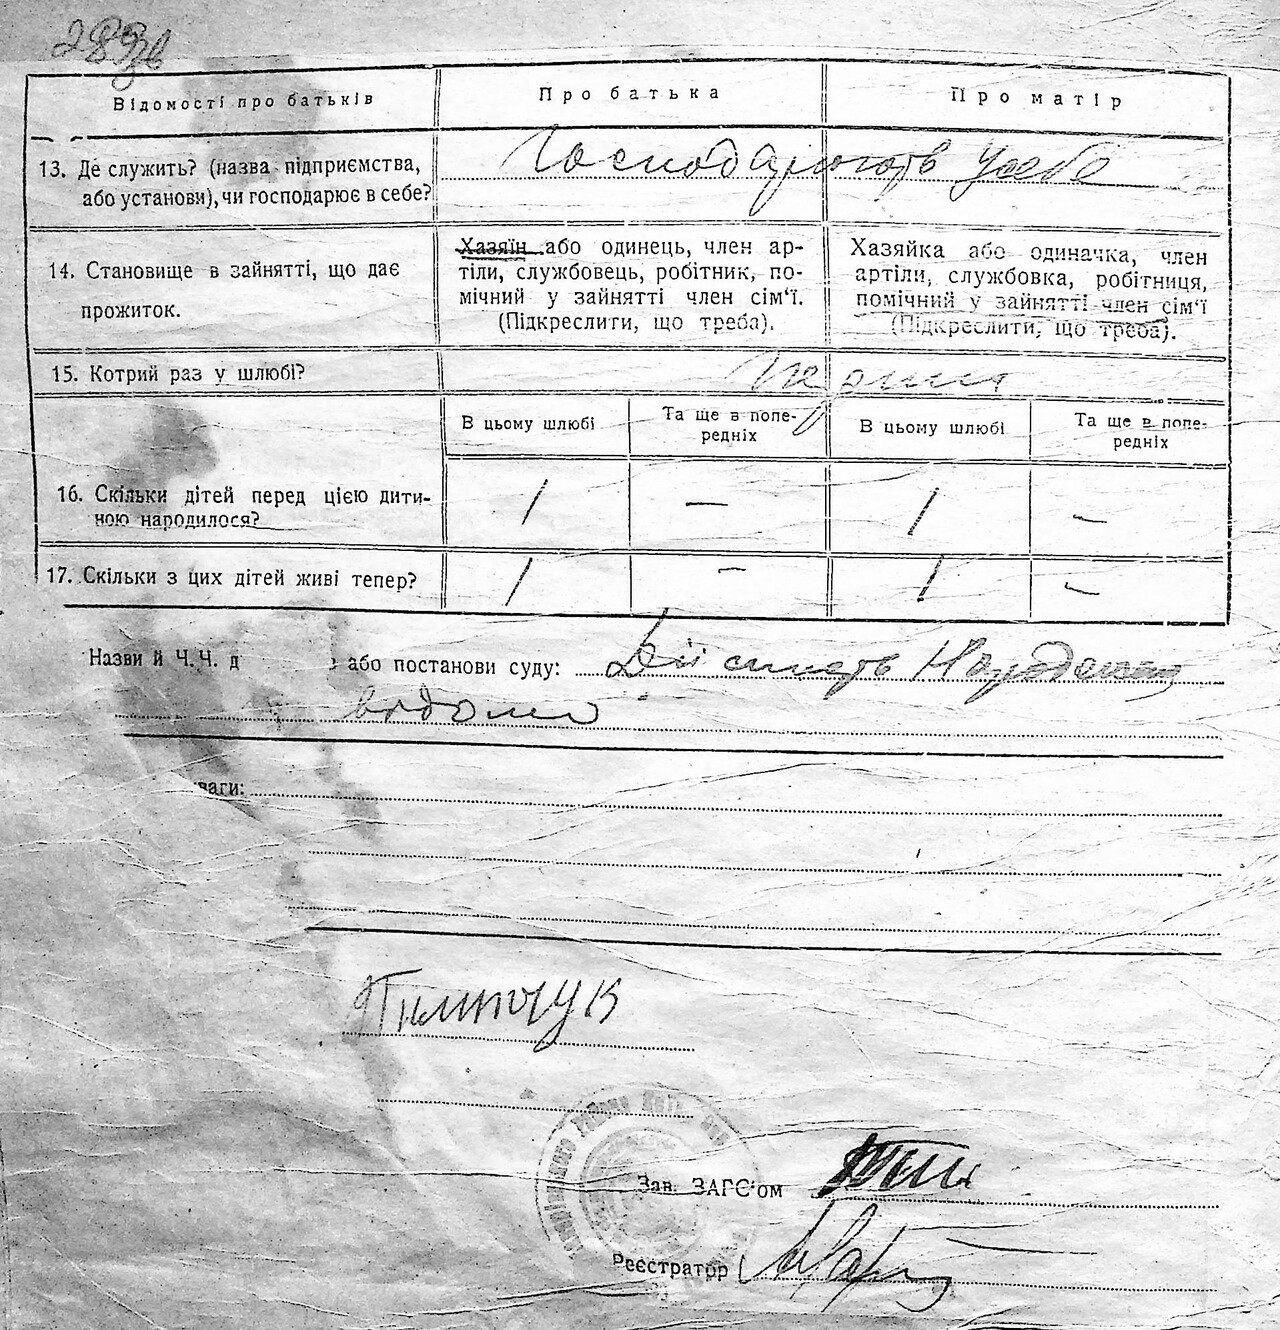 Відомості про батьків
Про батька
Про матір
13. Де служить? (назва підприємства,
або установи), чи господарює в себе?
Господарюють у себе
14. Становище в зайнятті, що дає
прожиток.
Хазяїн або одинець, член ар-
тіли, службовець, робітник, по-
мічний у зайнятті член сім'ї.
(Підкреслити, що треба).
Хазяйка або одиначка, член
артіли, службовка, робітниця,
помічний у зайнятті член сім'ї
(Підкреслити, що треба).
15. Котрий раз у шлюбі?
Перший
В цьому шлюбі
Та ще в попе-
редніх
В цьому шлюбі
Та ще в попе-
редніх
16. Скільки дітей перед цією дити-
ною народилося?
1 — 1 —
17. Скільки з цих дітей живі тепер?
1 — 1 —
Назви й Ч.Ч. д
або постанови суду:
відомо
ваги:
Зав. ЗАГС'ом
Реєстратор